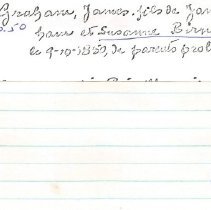 Graham, James. fils de Jam
50 ham et Susanne Birn
le 9-10-1850, de parents prob